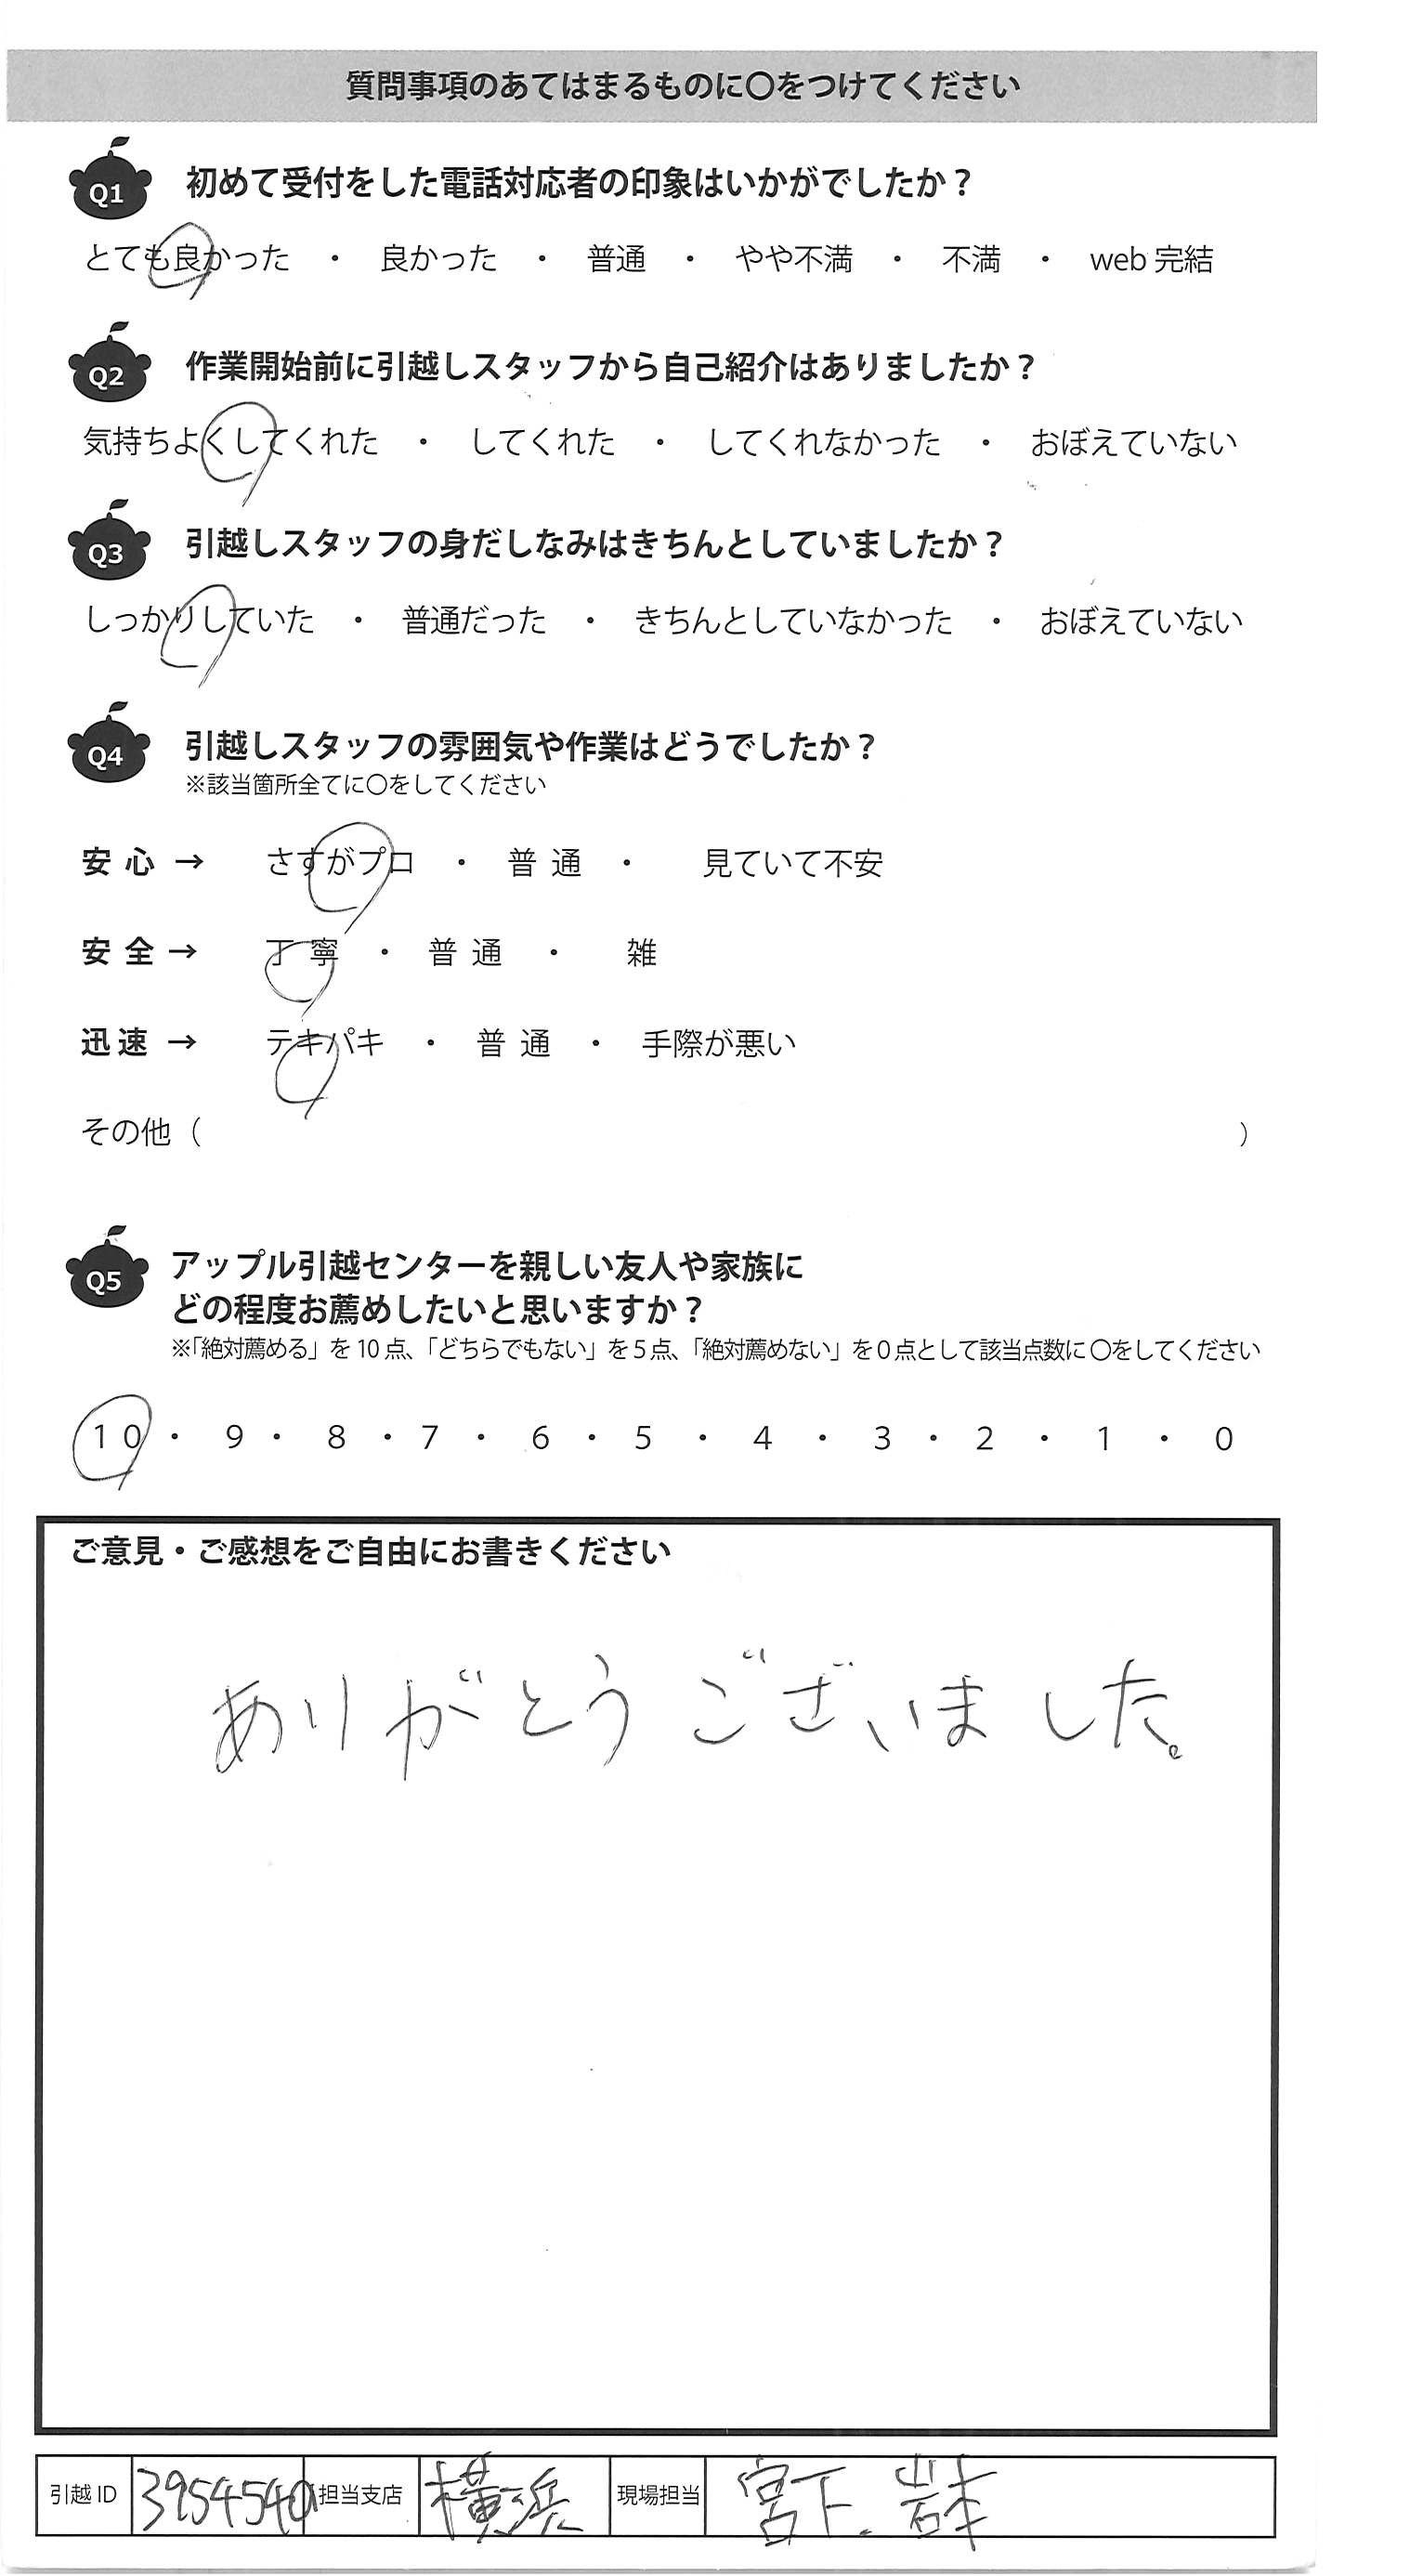 質問事項のあてはまるものに〇をつけてください
Q1 初めて受付をした電話対応者の印象はいかがでしたか？
とても良かった ・ 良かった ・ 普通 ・ やや不満 ・ 不満 ・ web 完結
Q2 作業開始前に引越しスタッフから自己紹介はありましたか？
気持ちよくしてくれた ・ してくれた ・ してくれなかった ・ おぼえていない
Q3 引越しスタッフの身だしなみはきちんとしていましたか？
しっかりしていた ・ 普通だった ・ きちんとしていなかった ・ おぼえていない
Q4 引越しスタッフの雰囲気や作業はどうでしたか？
※該当箇所全てに〇をしてください
安心 → さすがプロ ・ 普通 ・ 見ていて不安
安全 → 丁寧 ・ 普通 ・ 雑
迅速 → テキパキ ・ 普通 ・ 手際が悪い
その他（ ）
Q5 アップル引越センターを親しい友人や家族に
どの程度お薦めしたいと思いますか？
※「絶対薦める」を 10 点、「どちらでもない」を 5 点、「絶対薦めない」を 0 点として該当点数に 〇をしてください
10 ・ 9 ・ 8 ・ 7 ・ 6 ・ 5 ・ 4 ・ 3 ・ 2 ・ 1 ・ 0
ご意見・ご感想をご自由にお書きください
ありがとうございました。
引越 ID 担当支店 横浜 現場担当 宮下. 岩本